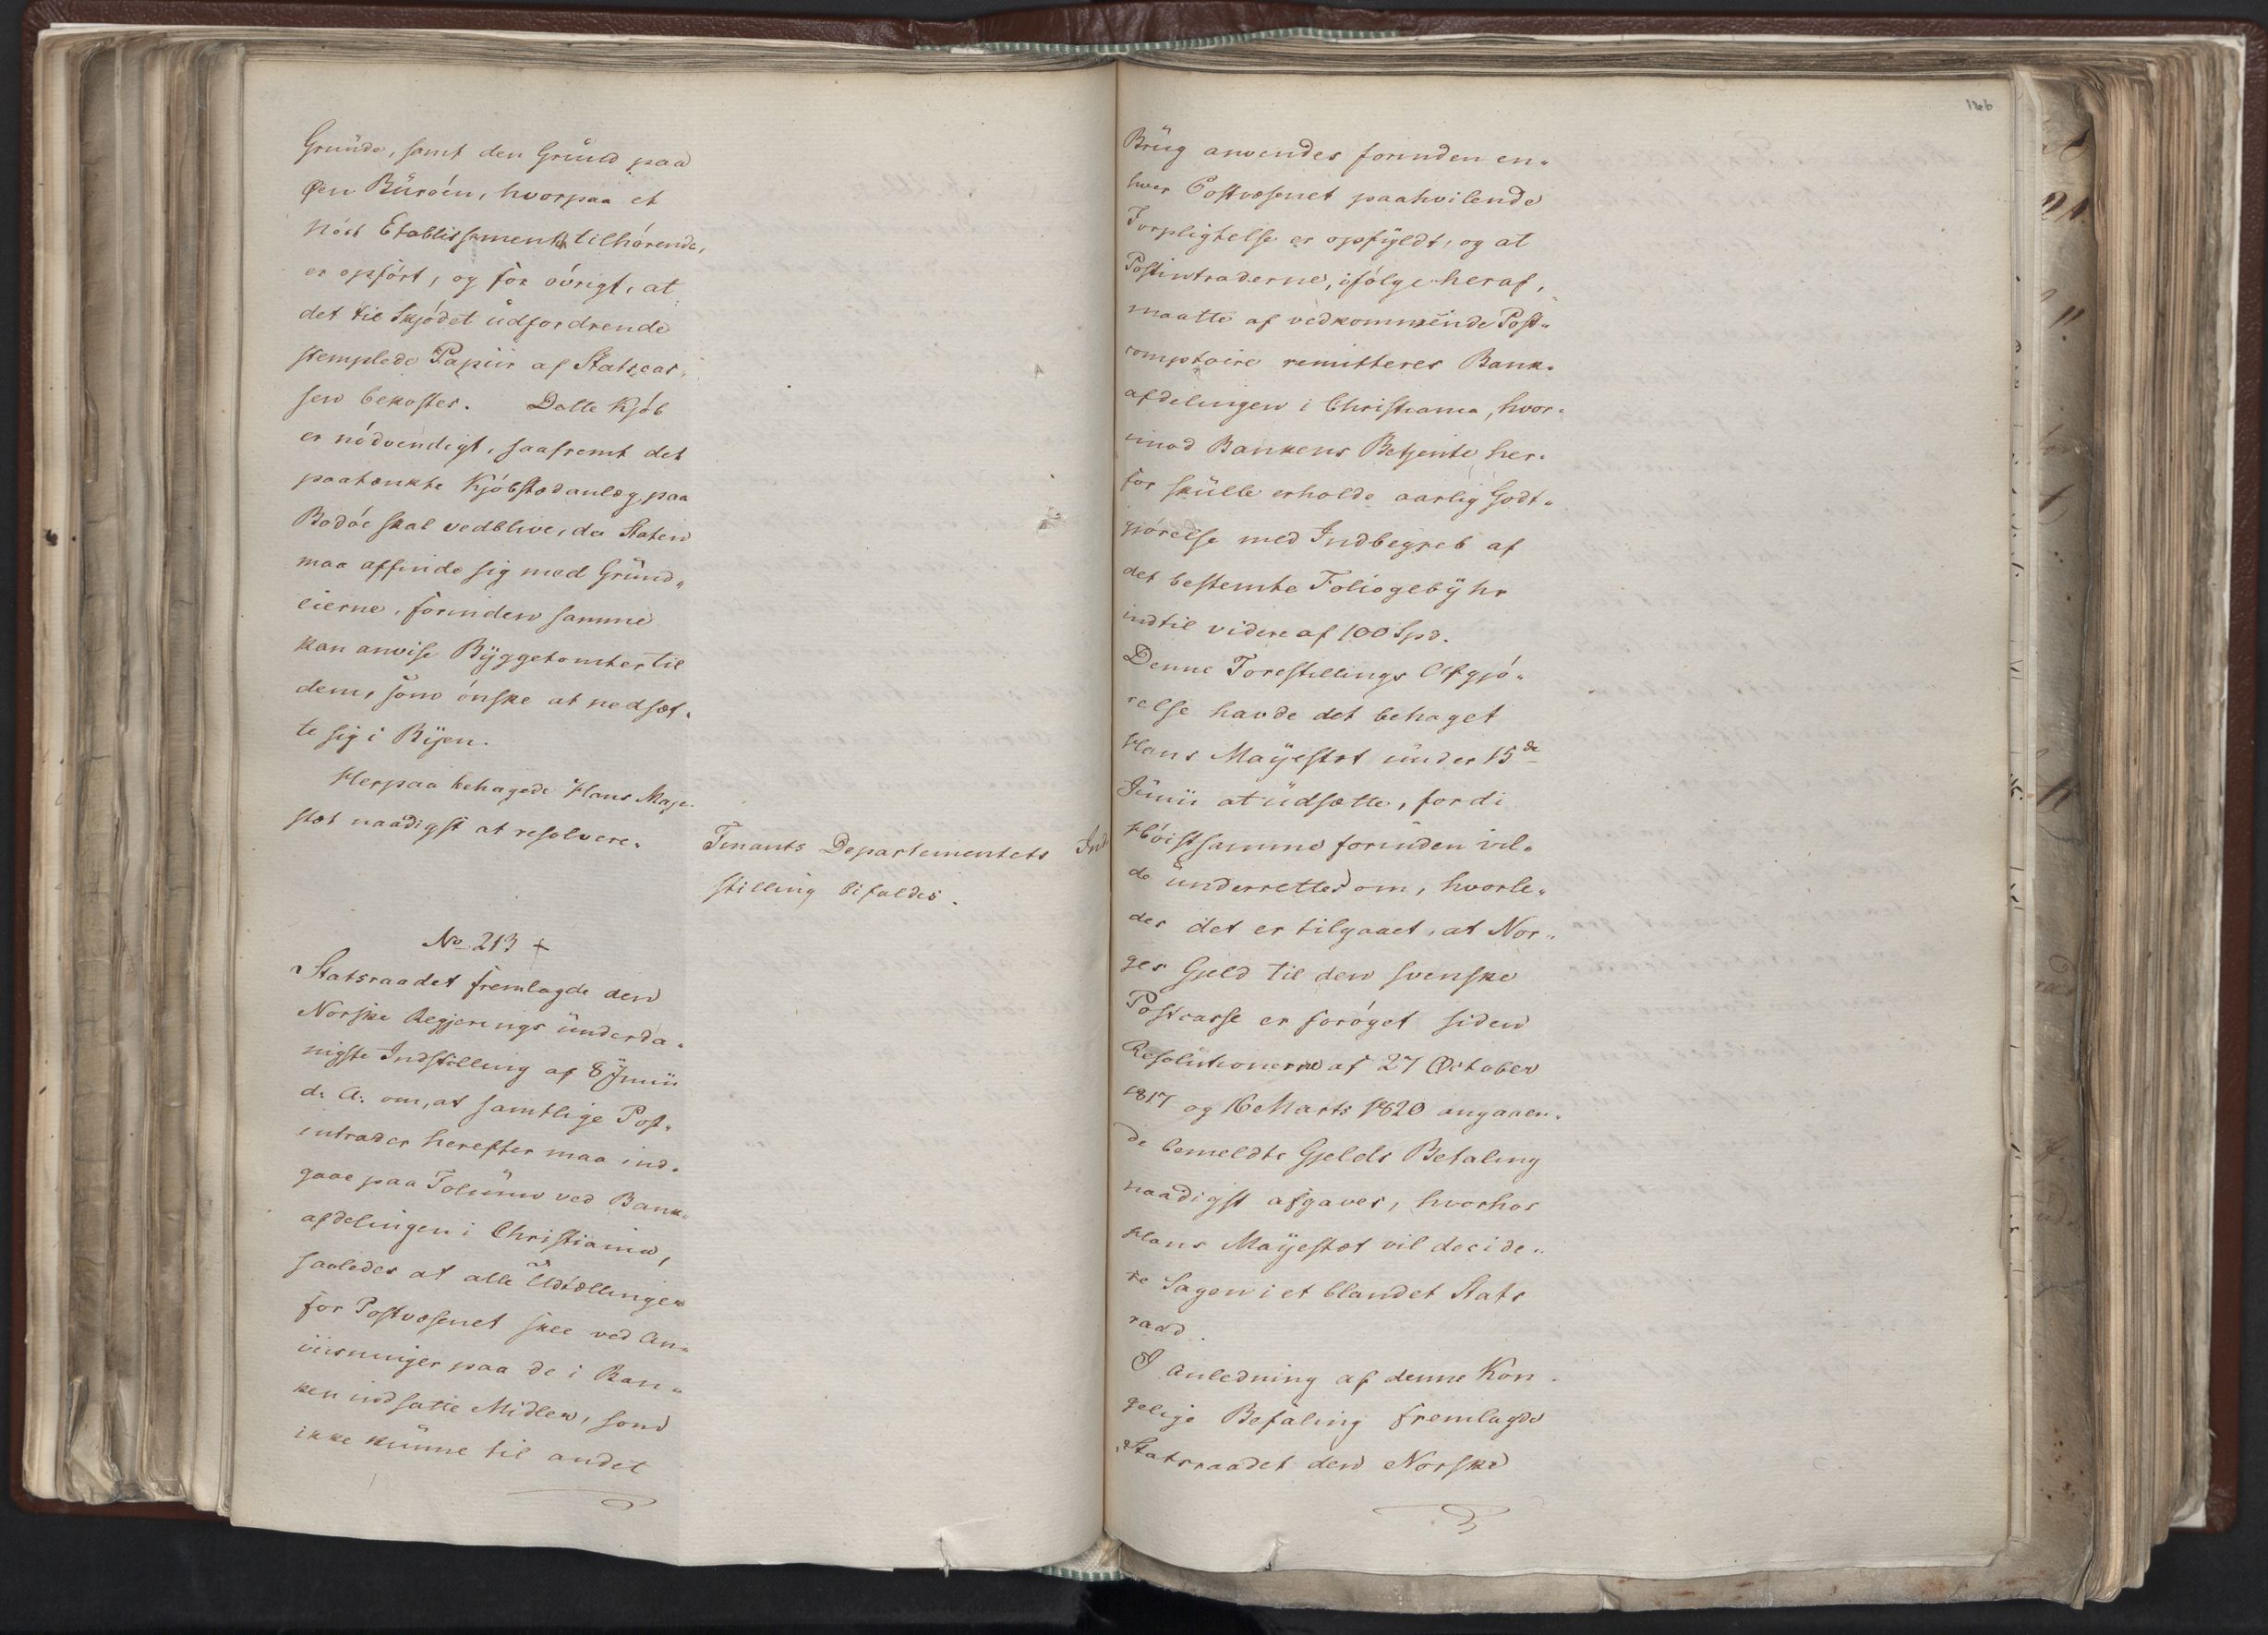 Grunde, samt den Grund paa
Øen Burøen, hvorpaa et
Etablissement tilhørende,
er opført, og for øvrigt, at
det til Skjødet udfordrende
stemplede Papiir af Statscas,
sen bekostes. Dette Kjøb
er nødvendigt, saafremt det
paatænkte Kjøbstadanlæg paa
Bodøe skal vedblive, da Staten
maa affinde sig med Grund„
eierne, forinden samme
kan anvise Byggetomter til
dem, som ønske at nedsæt„
te sig i Byen.
Herpaa behagede Hans Maje„
stæt naadigst at resolvere.
Finants Departementets Ind
stilling bifaldes.
No 213 +
Statsraadet fremlagde den
Norske Regjerings underda„
nigste Indstilling af 8 Junii
d: A: om, at samtlige Post„
intrader herefter maa ind„
gaae paa Folium ved Bank„
afdelingen i Christiania,
saaledes at alle Udtællinger
for Postvæsenet skee ved An„
viisninger paa de i Ban„
ken indsatte Midler, som
ikke kunne til andet
166
Brug anvendes forinden en„
hver Postvæsenet paahvilende
Forpligtelse er opfyldt, og at
Postintraderne, ifølge heraf,
maatte af vedkommende Post„
comptoire remitteres Bank„
afdelingen i Christiania, hvor„
imod Bankens Betjente her„
for skulle erholde aarlig Godt„
gjørelse med Indbegreb af
det bestemte Foliogebyhr
indtil videre af 100 Spd.
Denne Forestillings Afgjø„
relse havde det behaget
Hans Majestæt under 15de
Junii at udsætte, fordi
Høistsamme forinden vil„
de underrettes om, hvorle„
des det er tilgaaet, at Nor„
ges Gjeld til den svenske
Postcasse er forøget siden
Resolutionerne af 27 October
1817 og 16 Marts 1820 angaaen„
de bemeldte Gjelds Betaling
naadigst afgaves, hvorhos
Hans Majestæt vil decide„
re Sagen i et blandet Stats
raad.
I Anledning af denne Kon„
gelige Befaling fremlagde
Statsraadet den Norske